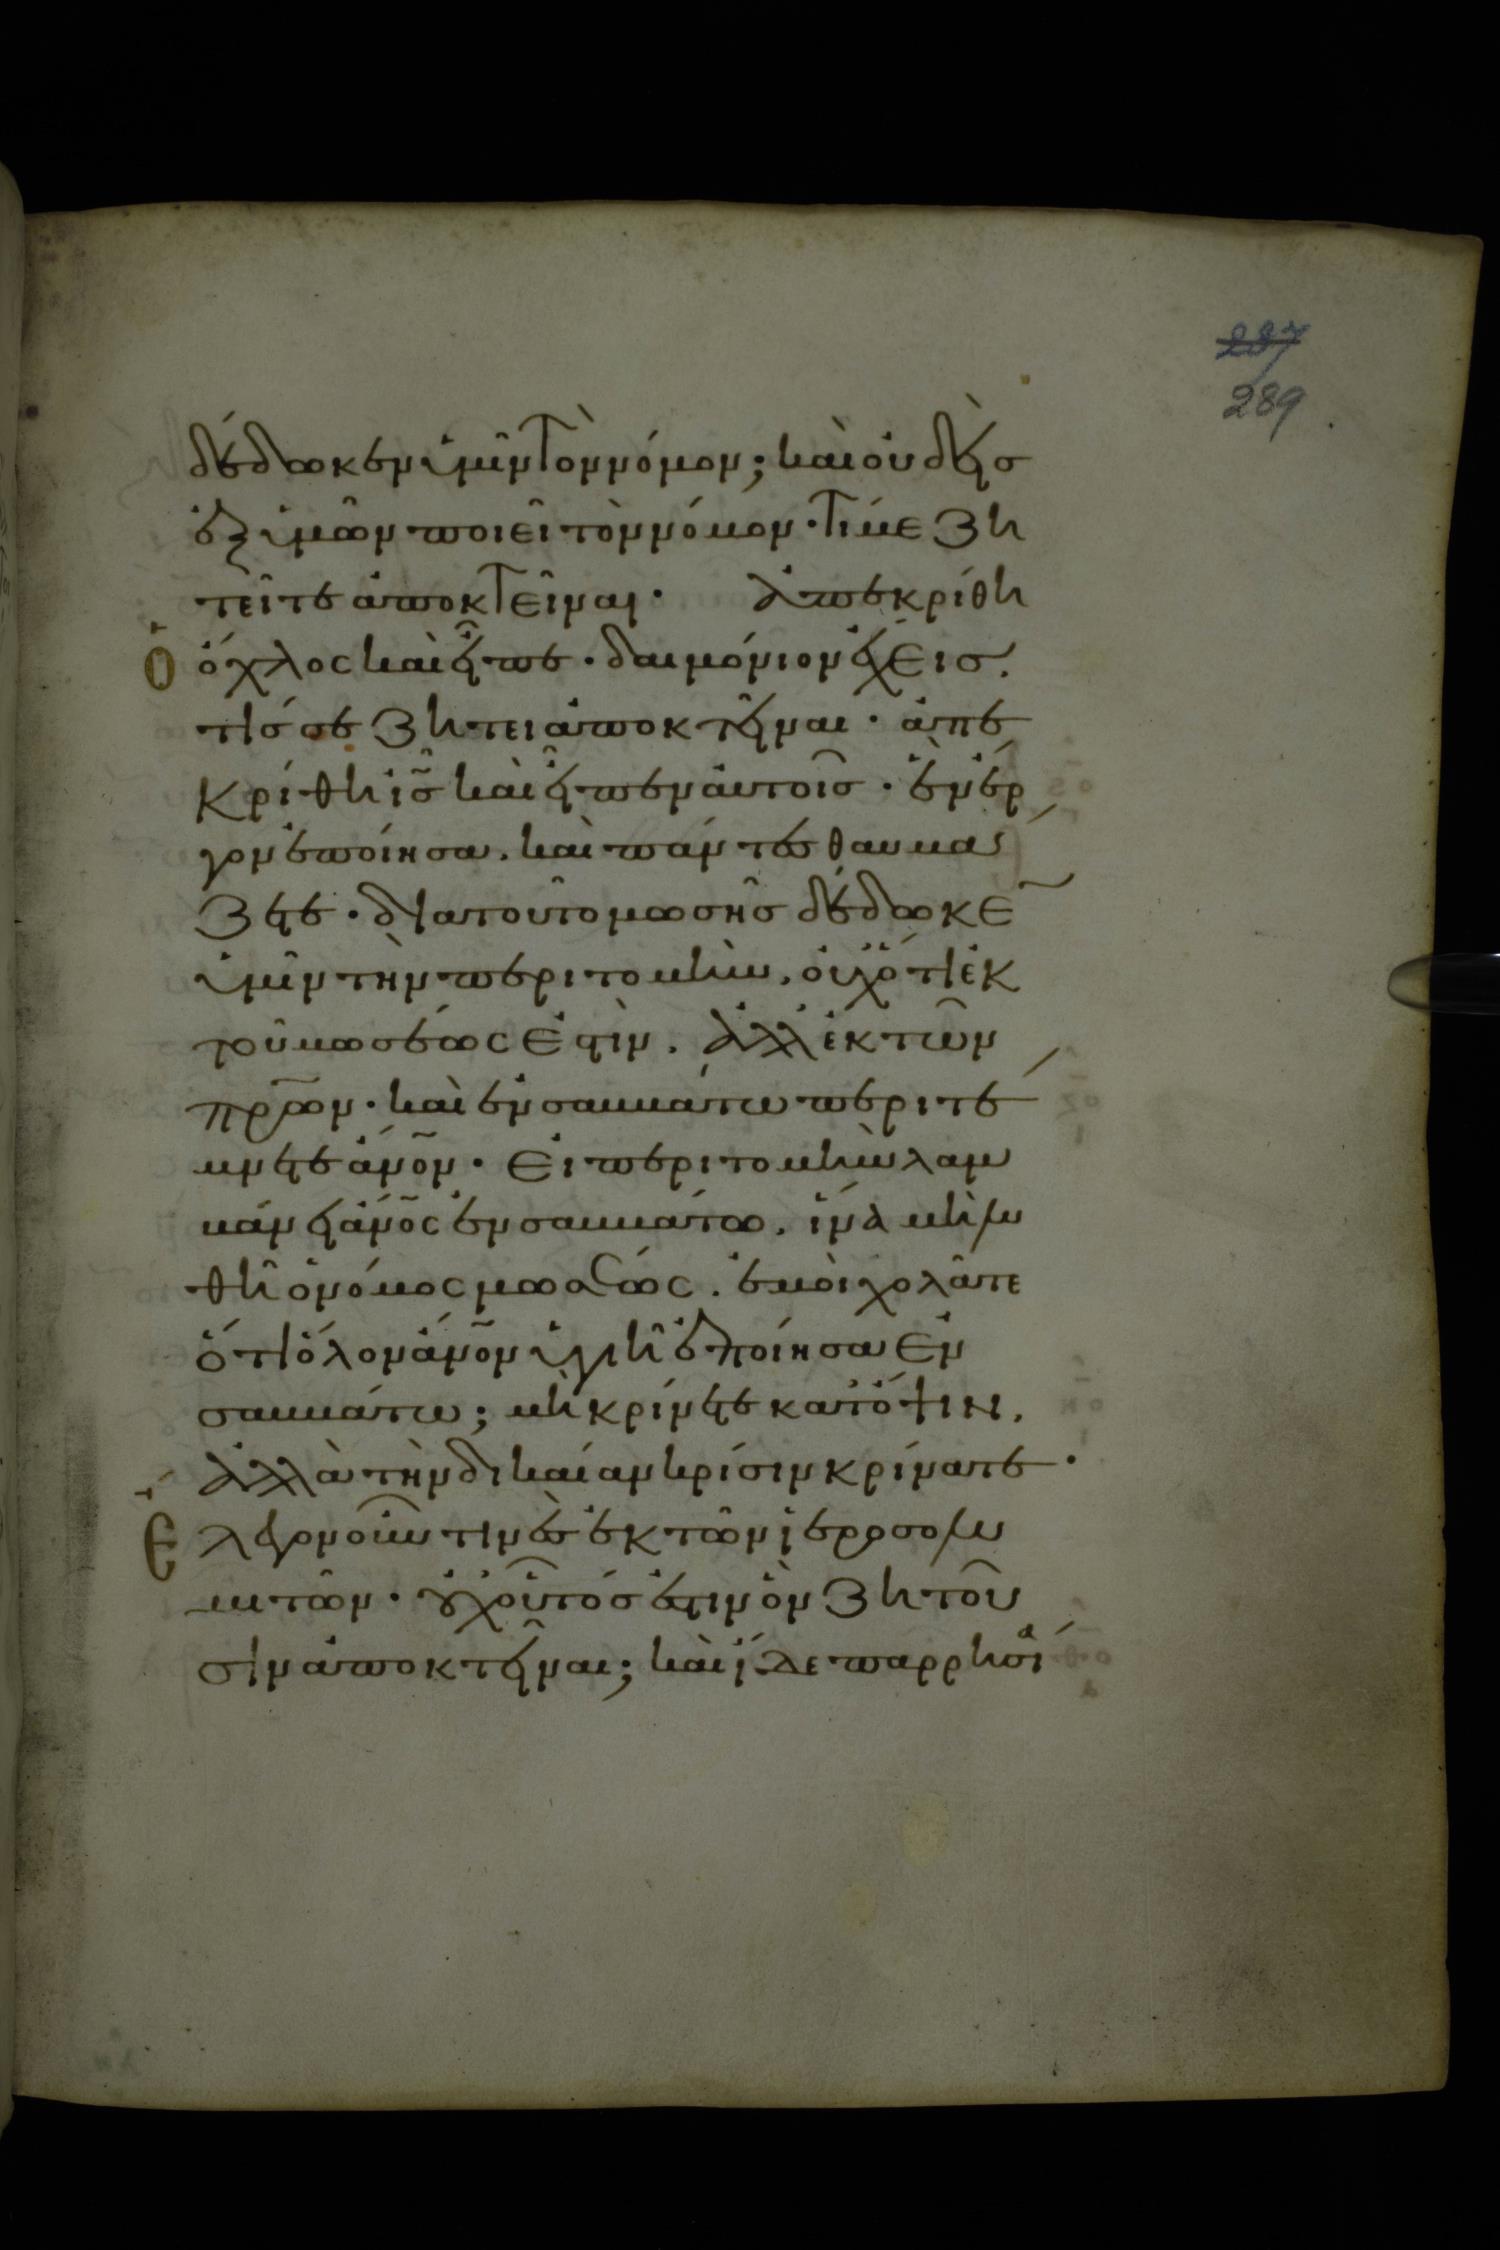 287
289
δέδωκεν ὑμῖν τὸν νόμον; καὶ οὐδεὶς
ἐξ ὑμῶν ποιεῖ τὸν νόμον· τί με ζη
τεῖτε ἀποκτεῖναι· ἀπεκρίθη
Ὁ ὄχλος καὶ εἶπε· δαιμόνιον ἔχεις.
τίς σε ζητεῖ ἀποκτεῖναι· ἀπε
κρίθη ις̃ καὶ εἶπεν αὐτοῖς· ἓν ἔρ
γον ἐποίησα. καὶ πάντες θαυμά
ζετε· διατοῦτο μωσῆς δέδωκε̃
ὑμῖν τὴν περιτομὴν. οὐχ ὅτι ἐκ
τοῦ μωσέως ἐστὶν. ἀλλ ἐκ τῶν
πρ̅ων· καὶ ἐν σαββάτω περιτέ
μνετε ἄνο̅ν· εἰ περιτομὴν λαμ
βάνει ἄνο̅ς ἐν σαββάτω. ἵνα μὴ λυ
θῆ ὁ νόμος μωσέως. ἐμοὶ χολᾶτε
ὅτι ὅλον ἄνο̅ν ὑγιῆ ἐποίησα ἐν
σαββάτω; μὴ κρίνετε κατ ὄψιν.
ἀλλὰ τὴν δικαίαν κρίσιν κρίνατε·
Ἔ λεγον οὖν τινὲς ἐκ τῶν ἱεροσολυ
μιτῶν· οὐχ οὗτός ἐστιν ὃν ζητοῦ
σιν ἀποκτεῖναι; καὶ ἴδε παρρησία